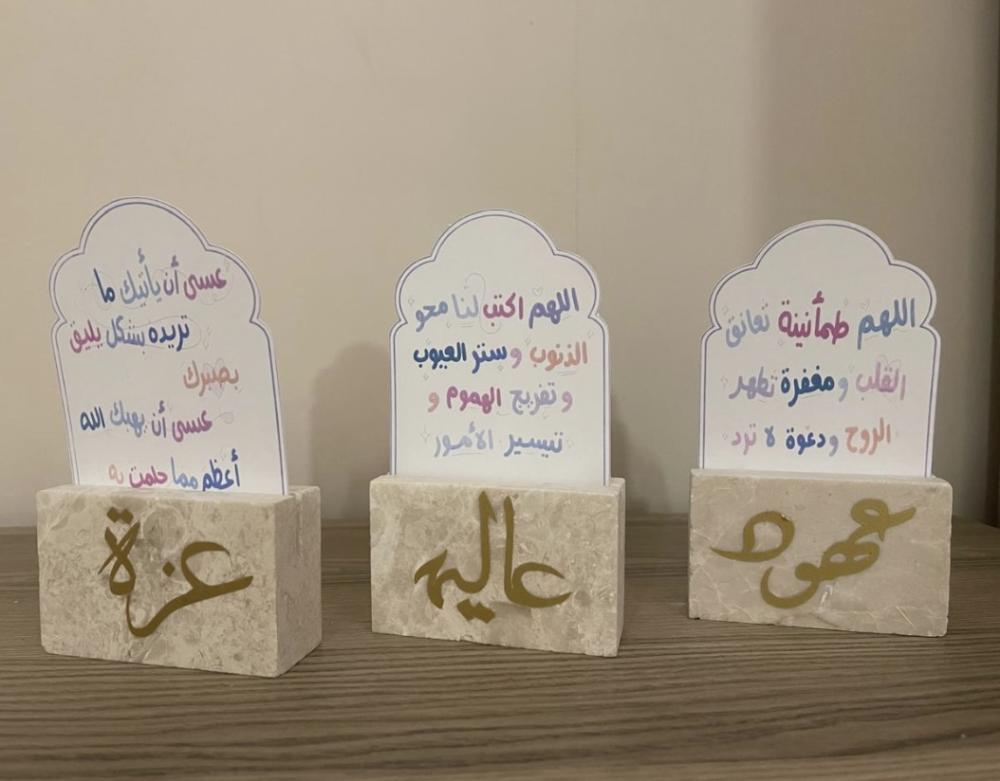 اللهم طمأنينة تعانق
القلب ومغفرة تطهر
الروح ودعوة لا ترد
عهود
اللهم اكتب لنا محو
الذنوب وستر العيوب
وتفريج الهموم و
تيسير الأمور
عاليه
عسى أن يأتيك ما
تريده بشكل يليق
بصبرك
عسى أن يهبك الله
أعظم مما حلمت به
عزة